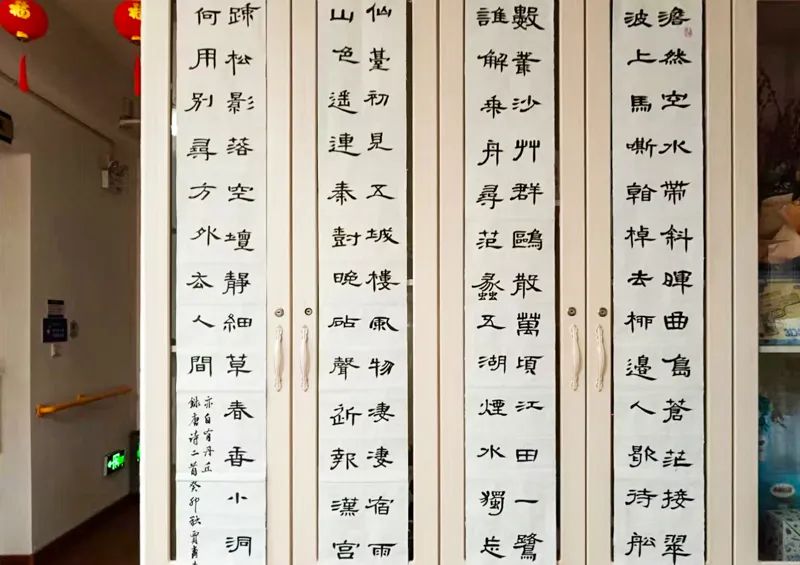 福
福
澹然空水帶斜暉曲島蒼茫接翠
波上馬嘶看棹去柳邊人歇待船
數叢沙艸群鷗散萬頃江田一鷺
誰解乘舟尋范蠡五湖煙水獨忘
仙臺初見五城樓風物淒淒宿雨
山色遙連秦樹晚砧聲近報漢宮
踈松影落空壇靜細草春香小洞
何用別尋方外去人間
亦自有丹丘
錄唐詩二首癸卯秋賈